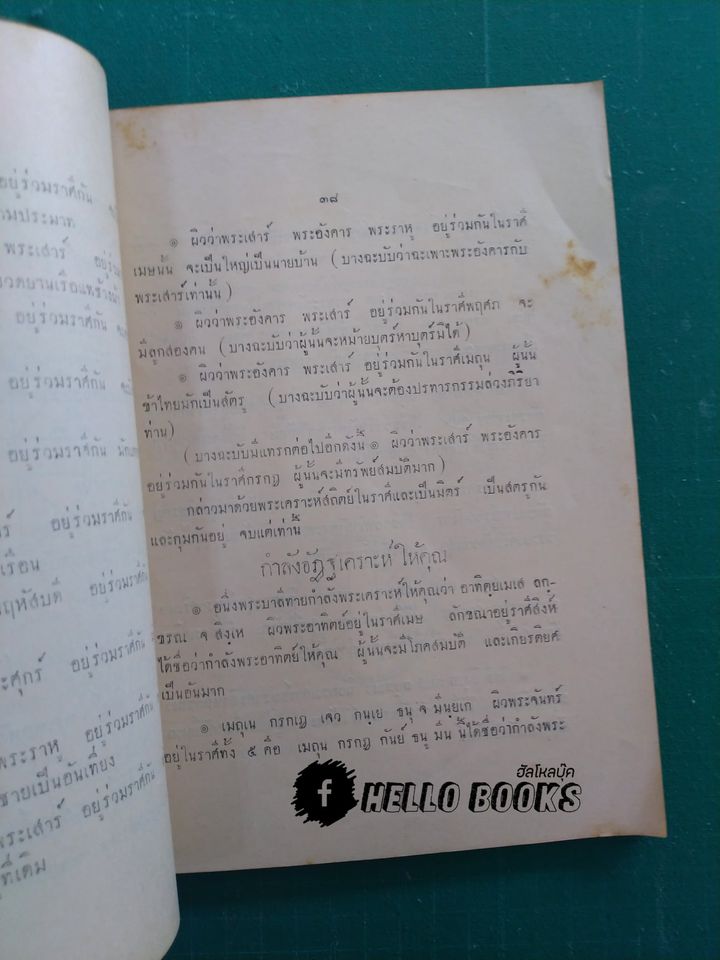 อยู่ร่วมราศีกัน
ามประมาท
พระเสาร์ อยู่ร่วม
อยู่ร่วมราศีกัน
อยู่ร่วมราศีกัน
อยู่ร่วมราศีกัน
ร์ อยู่ร่วมราศีกัน
เรือน
ฤหัสบดี อยู่ร่วมราศี
ะศุกร์ อยู่ร่วมราศีกัน
พระราหู อยู่ร่วมราศีกัน
ชายเป็นอันเที่ยง
พระเสาร์ อยู่ร่วมราศีกัน
ที่เดิม
๓๘
๑ ผิวว่าพระเสาร์ พระอังคาร พระราหู อยู่ร่วมกันในราศี
เมษนั้น จะเป็นใหญ่เป็นนายบ้าน (บางฉะบับว่าฉะเพาะพระอังคารกับ
พระเสาร์เท่านั้น)
๑ ผิวว่าพระอังคาร พระเสาร์ อยู่ร่วมกันในราศีพฤศภ จะ
มีลูกสองคน (บางฉะบับว่าผู้นั้นจะหม้ายบุตร์หาบุตร์มิได้)
๑ ผิวว่าพระอังคาร พระเสาร์ อยู่ร่วมกันในราศีเมถุน ผู้นั้น
ข้าไทยมักเป็นสัตรู (บางฉะบับว่าผู้นั้นจะต้องปรทารกรรมล่วงภิริยา
ท่าน)
(บางฉะบับมีแทรกต่อไปอีกดังนี้ ๑ ผิวว่าพระเสาร์ พระอังคาร
อยู่ร่วมกันในราศีกรกฎ ผู้นั้นจะมีทรัพย์สมบัติมาก)
กล่าวมาด้วยพระเคราะห์สถิตย์ในราศีและเป็นมิตร์ เป็นสตรูกัน
และกุมกันอยู่ จบแต่เท่านี้
กำลังอัฏฐเคราะห์ให้คุณ
๑ อนึ่งพระบาลีทายกำลังพระเคราะห์ให้คุณว่า อาทิตฺยเมเส ลกฺ-
ขรณ จ สิงฺเห ผิวพระอาทิตย์อยู่ในราศีเมษ ลักขณาอยู่ราศีสิงห์
ได้ชื่อว่ากำลังพระอาทิตย์ให้คุณ ผู้นั้นจะมีโภคสมบัติ และเกียรติยศ
เป็นอันมาก
๑ เมถุเน กรกฏ เจว กนฺเย ธนู จ มีนฺยเก ผิวพระจันทร์
อยู่ในราศีทั้ง ๕ คือ เมถุน กรกฎ กันย์ ธนู มีน นี้ได้ชื่อว่ากำลังพระ
ฮัลโหลบุ๊ค
f HELLO BOOKS